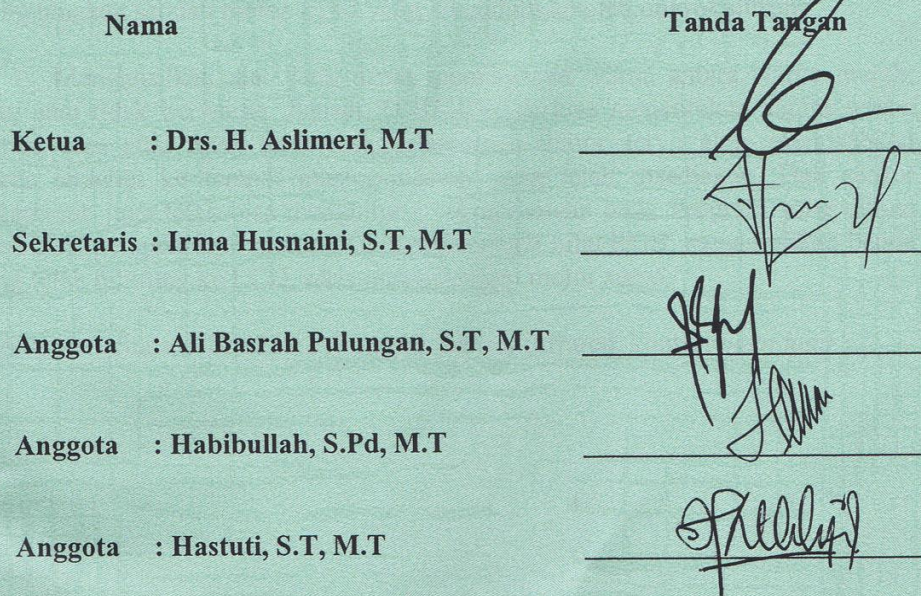 Nama Tanda Tangan
Ketua : Drs. H. Aslimeri, M.T
Sekretaris : Irma Husnaini, S.T, M.T
Anggota : Ali Basrah Pulungan, S.T, M.T
Anggota : Habibullah, S.Pd, M.T
Anggota : Hastuti, S.T, M.T